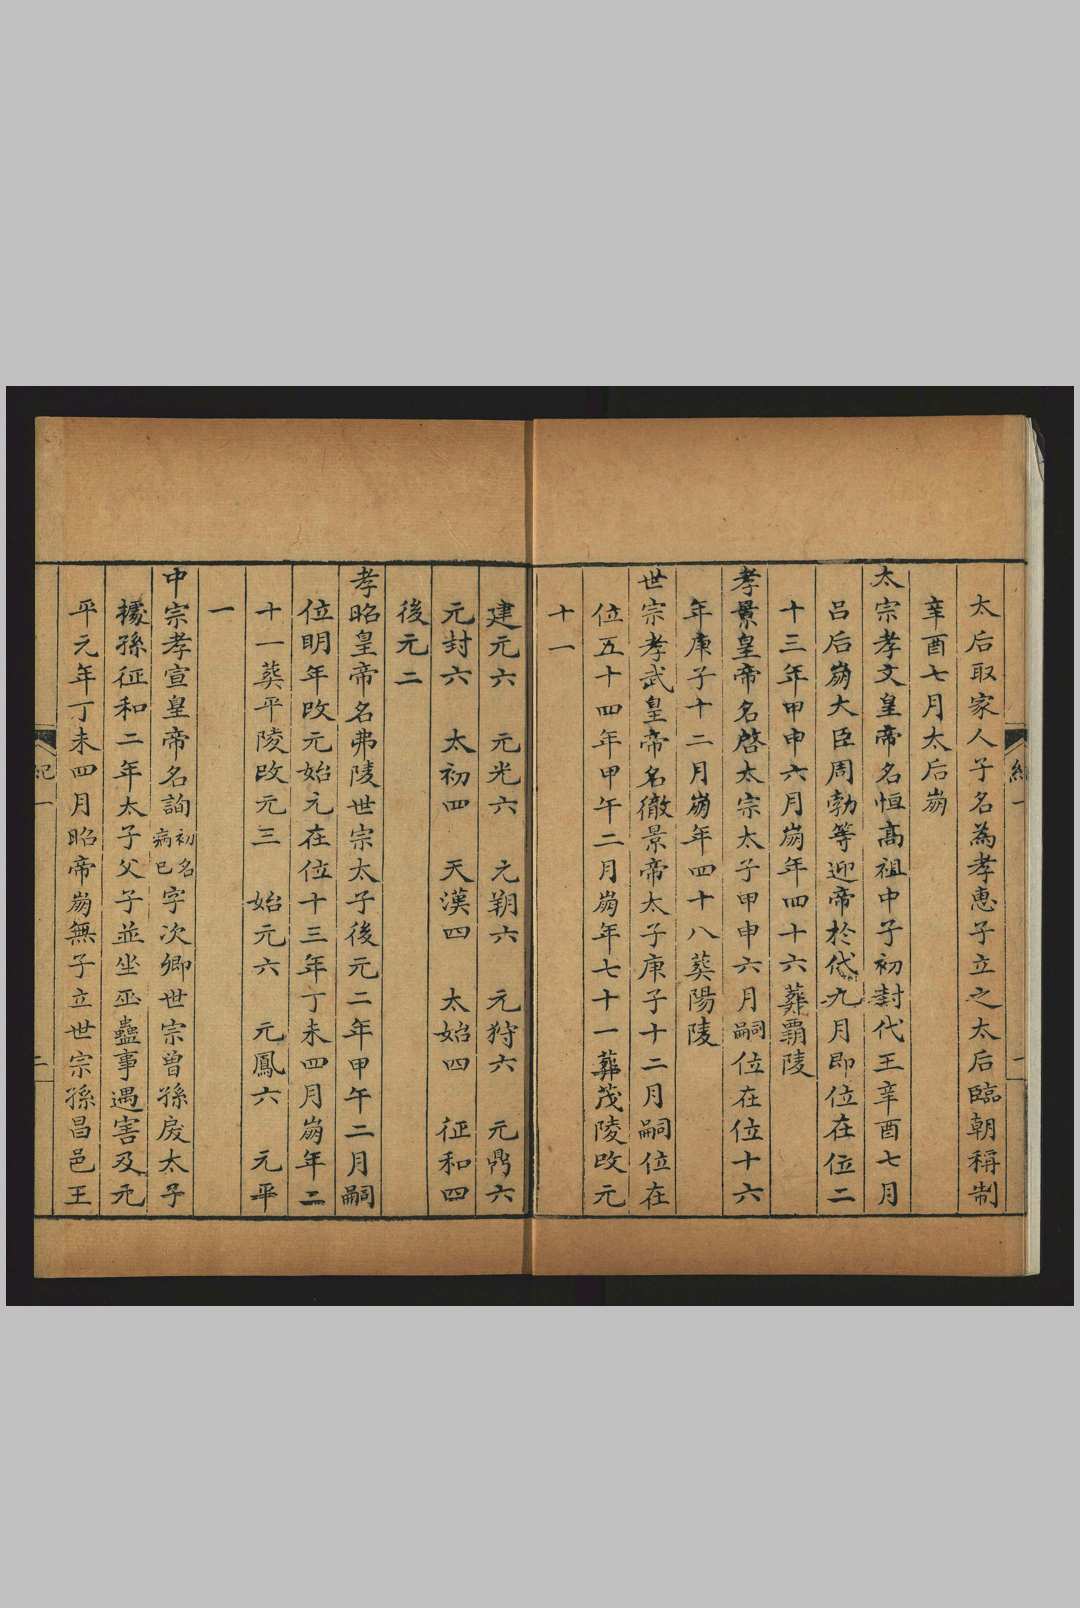 太后取家人子名為孝惠子立之太后臨朝稱制
辛酉七月太后崩
太宗孝文皇帝名恒高祖中子初封代王辛酉七月
呂后崩大臣周勃等迎帝於代九月即位在位二
十三年甲申六月崩年四十六葬覇陵
孝景皇帝名啓太宗太子甲申六月嗣位在位十六
年庚子十二月崩年四十八葬陽陵
世宗孝武皇帝名徹景帝太子庚子十二月嗣位在
位五十四年甲午二月崩年七十一葬茂陵改元
十一
建元六 元光六 元朔六 元狩六 元鼎六
元封六 太初四 天漢四 太始四 征和四
後元二
孝昭皇帝名弗陵世宗太子後元二年甲午二月嗣
位明年改元始元在位十三年丁未四月崩年二
十一葬平陵改元三 始元六 元鳳六 元平
一
中宗孝宣皇帝名詢初名病已字次卿世宗曾孫戾太子
據孫征和二年太子父子並坐巫蠱事遇害及元
平元年丁未四月昭帝崩無子立世宗孫昌邑王
紀一
二